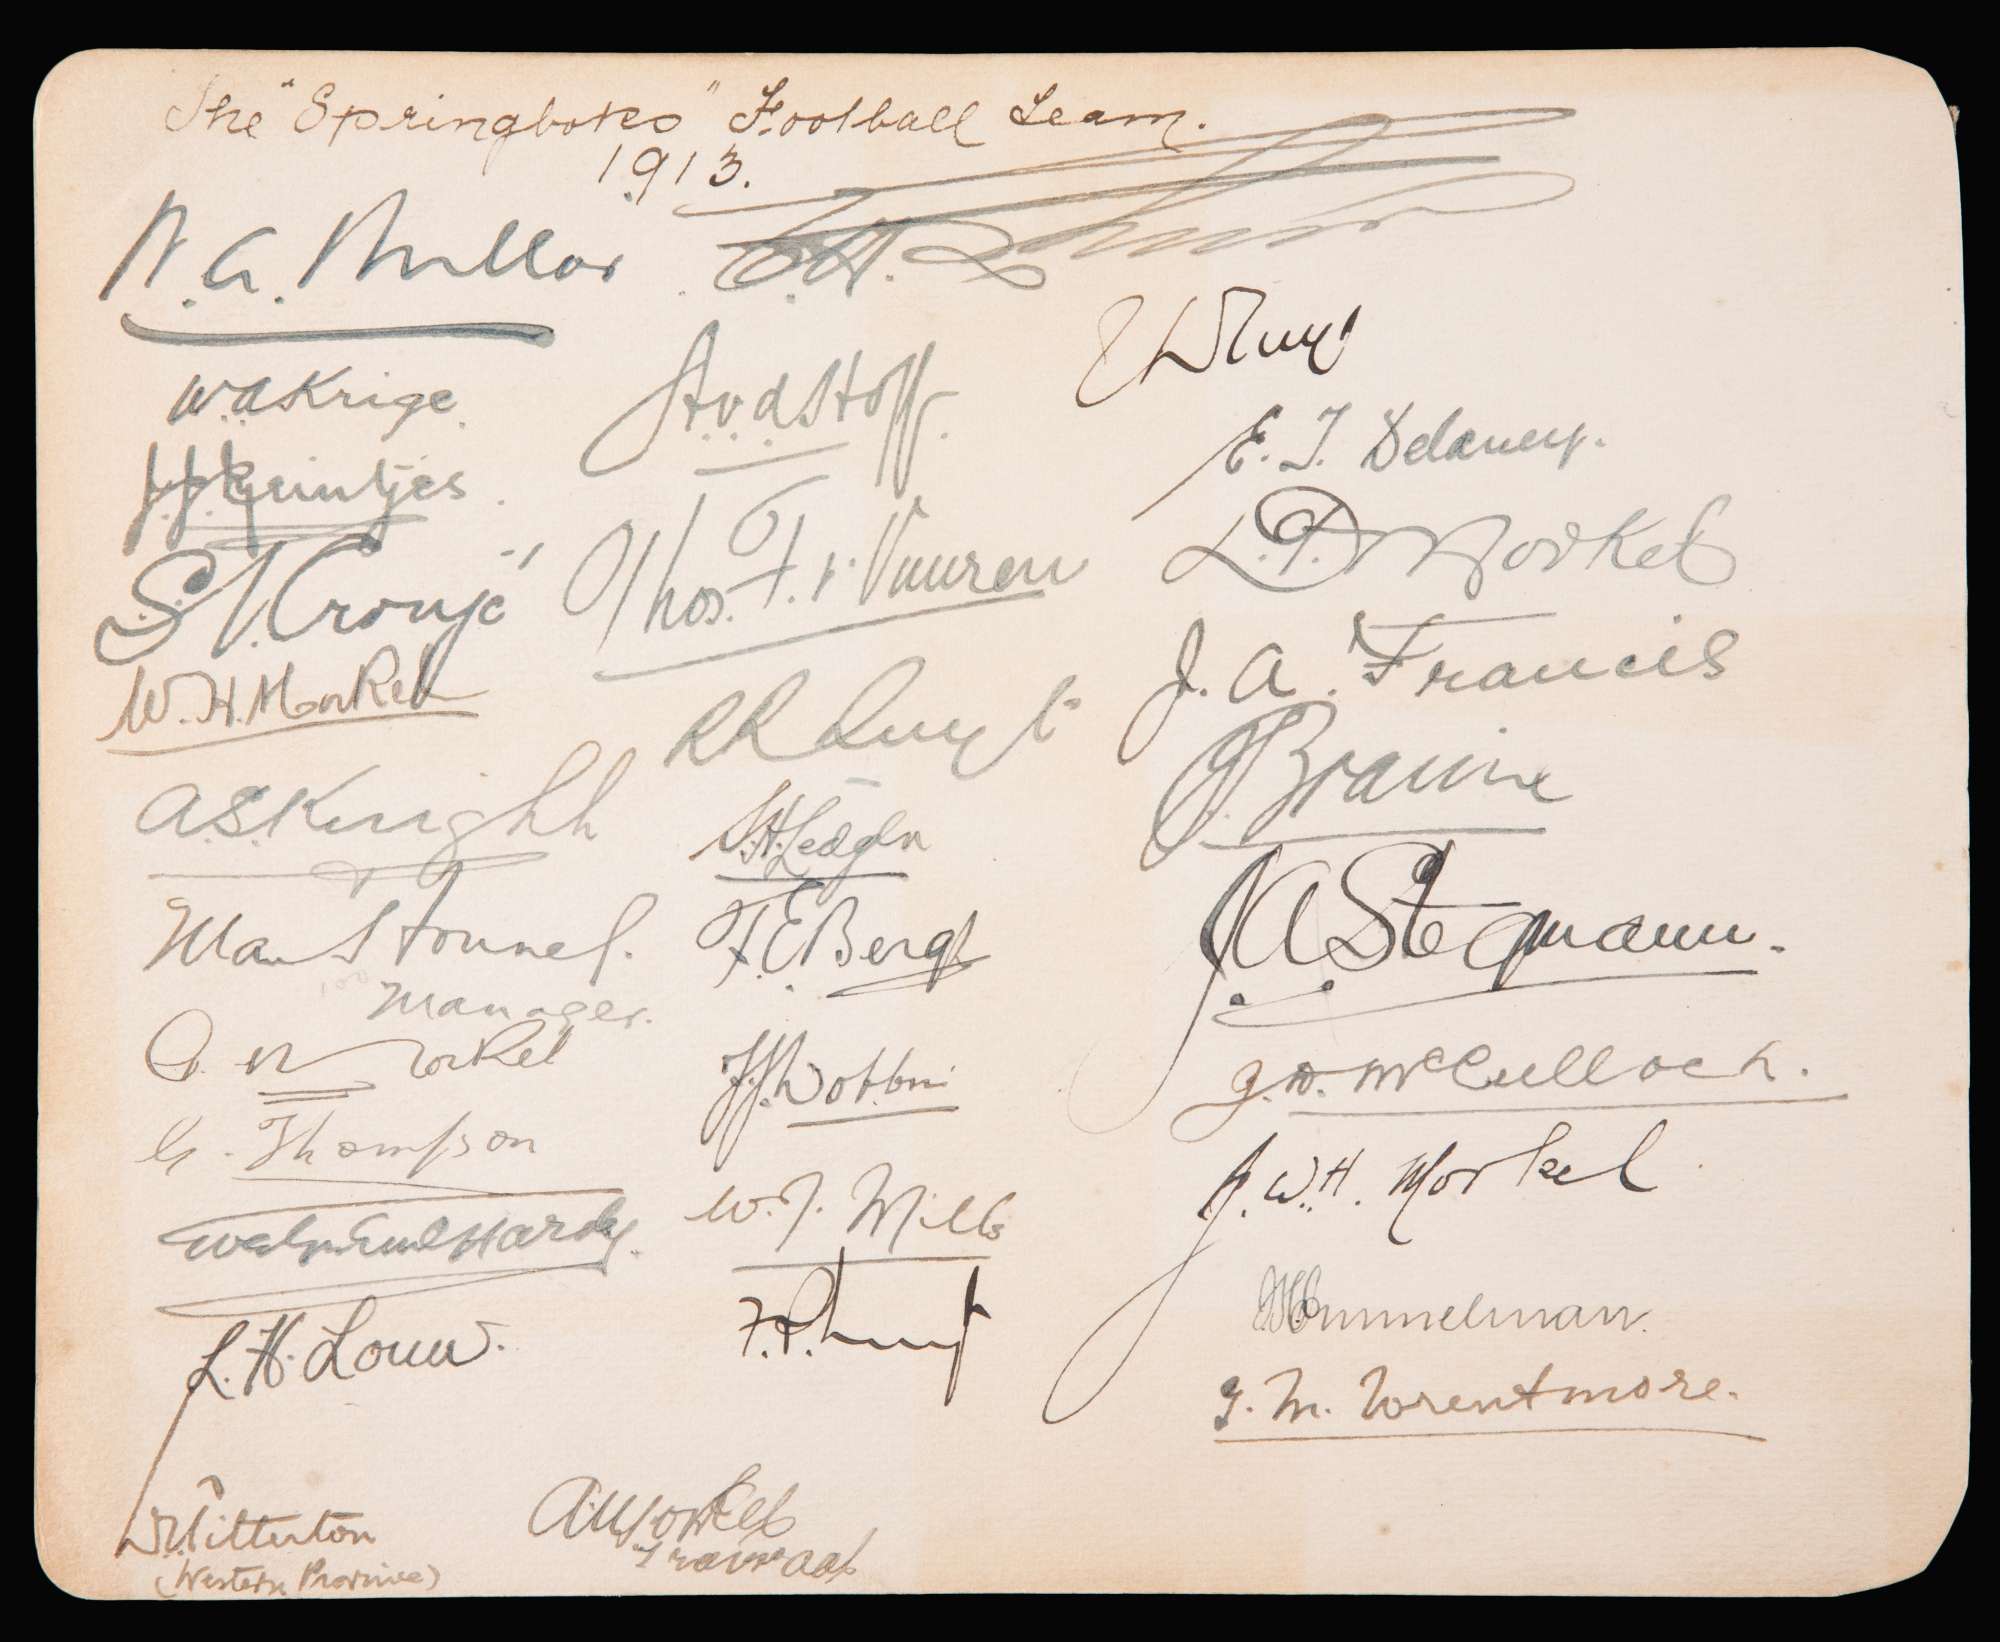 The "Springboks" Football Team.
1913.
W.A. Millar
F.H. Luyt
W.A Krige
J.J. Meintjes
S.N. Cronje
W.H. Morkel
A.S. Knight
Max Honnet.
Manager.
G. M Morkel
G. Thompson
L.H. Louw.
A. v. d Hoff
Thos. F. v. Vuuren
R R Luyt
S.H. Ledger
F.E. Bergh
J.D. Luyt
E.T. Delaney.
D.F.T. Morkel
J.A. Francis
J. Braine
J.A. Stegmann.
J.D. McCulloch.
J.W.H. Morkel
W.J. Mills
F.P. Luyt
Immelman.
G.M. Wrentmore.
Titterton
(Western Province)
A. Morkel
Transvaal